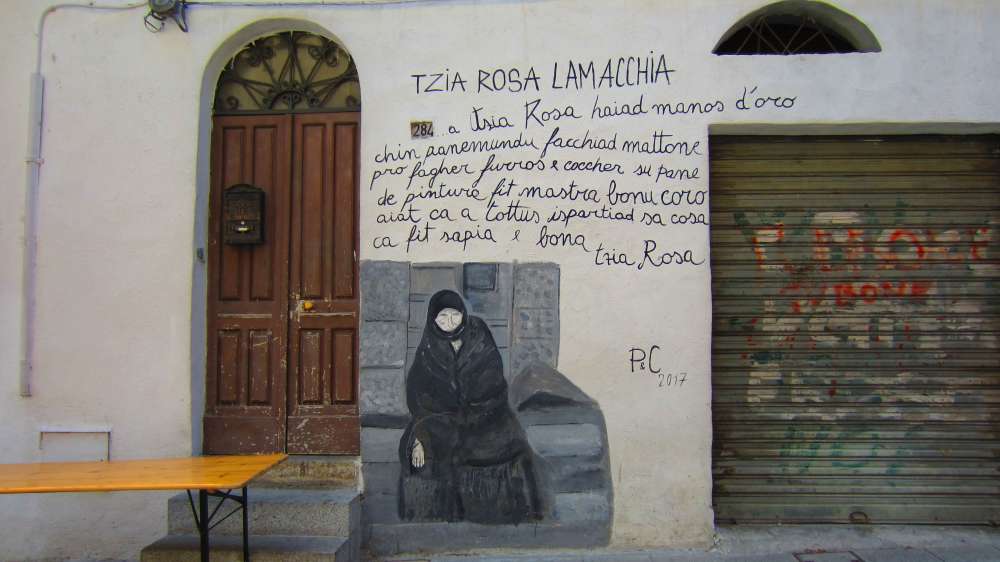 TZIA ROSA LAMACCHIA
284 ...a tzia Rosa haiad manos d'oro
chin panemundu facchiad mattone
pro fagher furros e coccher su pane
de pintura fit mastra bonu coro
aiat ca a tottus ispartiad sa cosa
ca fit sapia e bona
tzia Rosa
P&C
2017
BONE